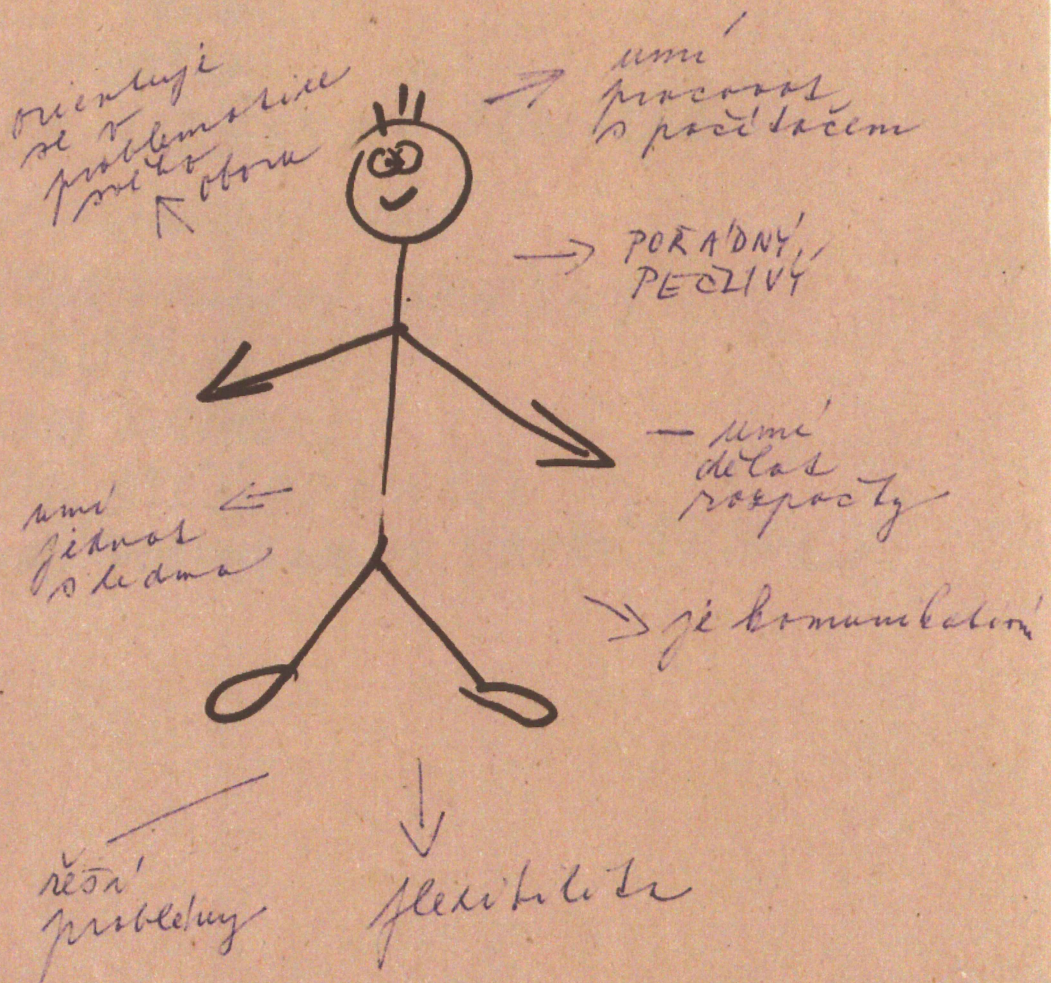 orientuje
se v
problematice
svého
oboru
umí
pracovat
s počítačem
POŘÁDNÝ,
PEČLIVÝ
umí
dělat
rozpočty
umí
jednat
s lidma
je komunikativní
řeší
problémy
flexibilita